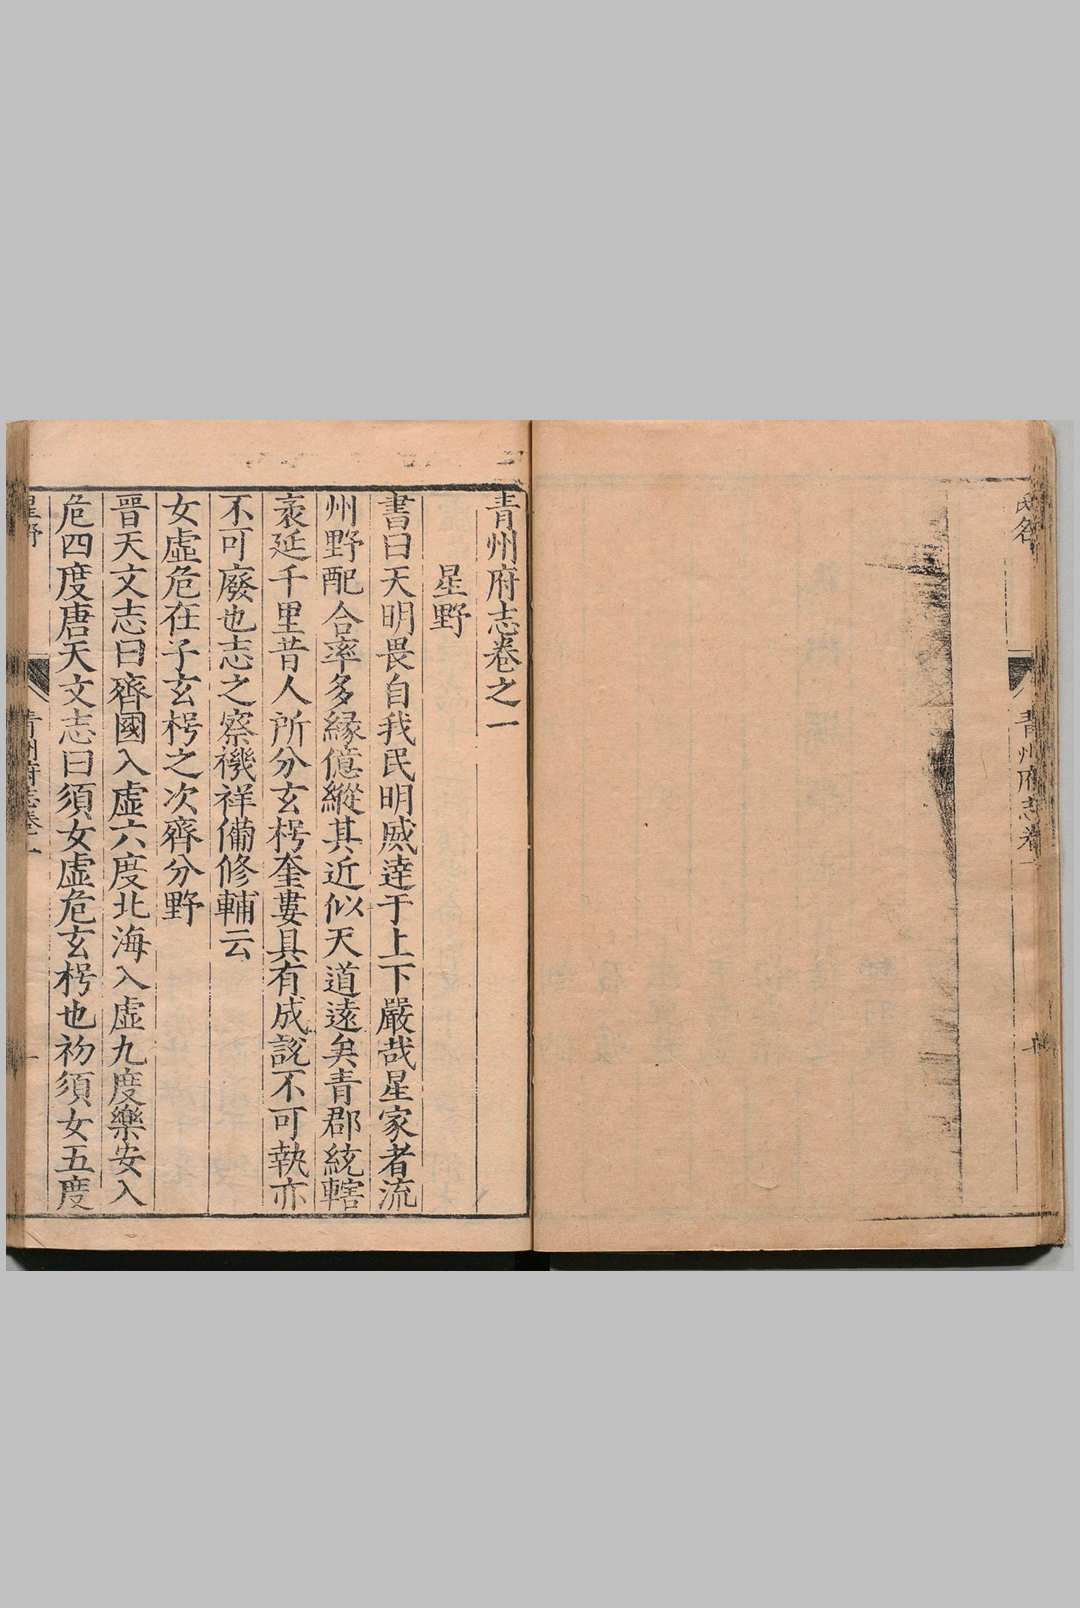 氏名
青州府志卷一
青州府志卷之一
星野
書曰天明畏自我民明威達于上下嚴哉星家者流
州野配合率多緣億縱其近似天道遠矣青郡統轄
袤延千里昔人所分玄枵奎婁具有成說不可執亦
不可廢也志之察禨祥備修輔云
女虛危在子玄枵之次齊分野
晉天文志曰齊國入虛六度北海入虛九度樂安入
危四度唐天文志曰須女虛危玄枵也初須女五度
星野
青州府志卷一
一